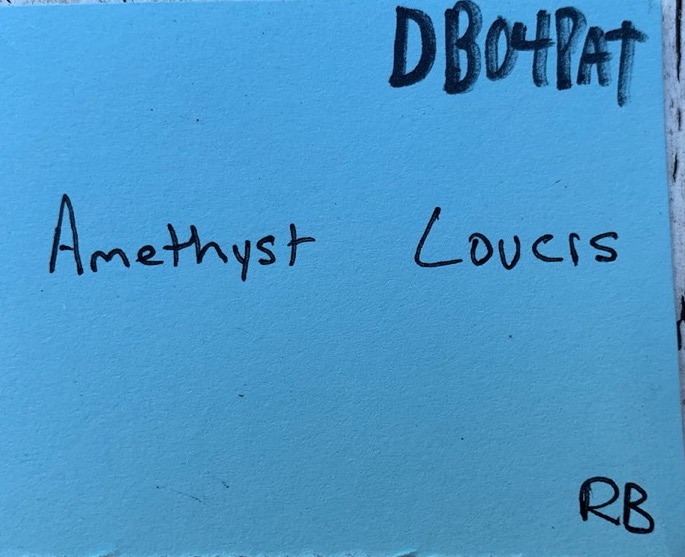 DB04PAT
Amethyst Lovers
RB